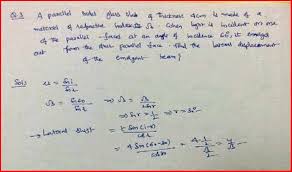 Q.3 A parallel sided glass slab of thickness 4cm is made of a
material of refractive index √3. When light is incident on one
of the parallel faces at an angle of incidence 60°, it emerges
out from the other parallel face. Find the lateral displacement
of the emergent beam?
Sol: u = Sin i / Sin r
√3 = Sin 60 / Sin r ⇒ √3 = √3/2 / Sin r
⇒ Sin r = 1/2 ⇒ r = 30°
→ Lateral Shift = t Sin(i-r) / Cos r
= 4 Sin(60-30) / Cos 30 = 4 · 1/2 / √3/2 = 4/√3